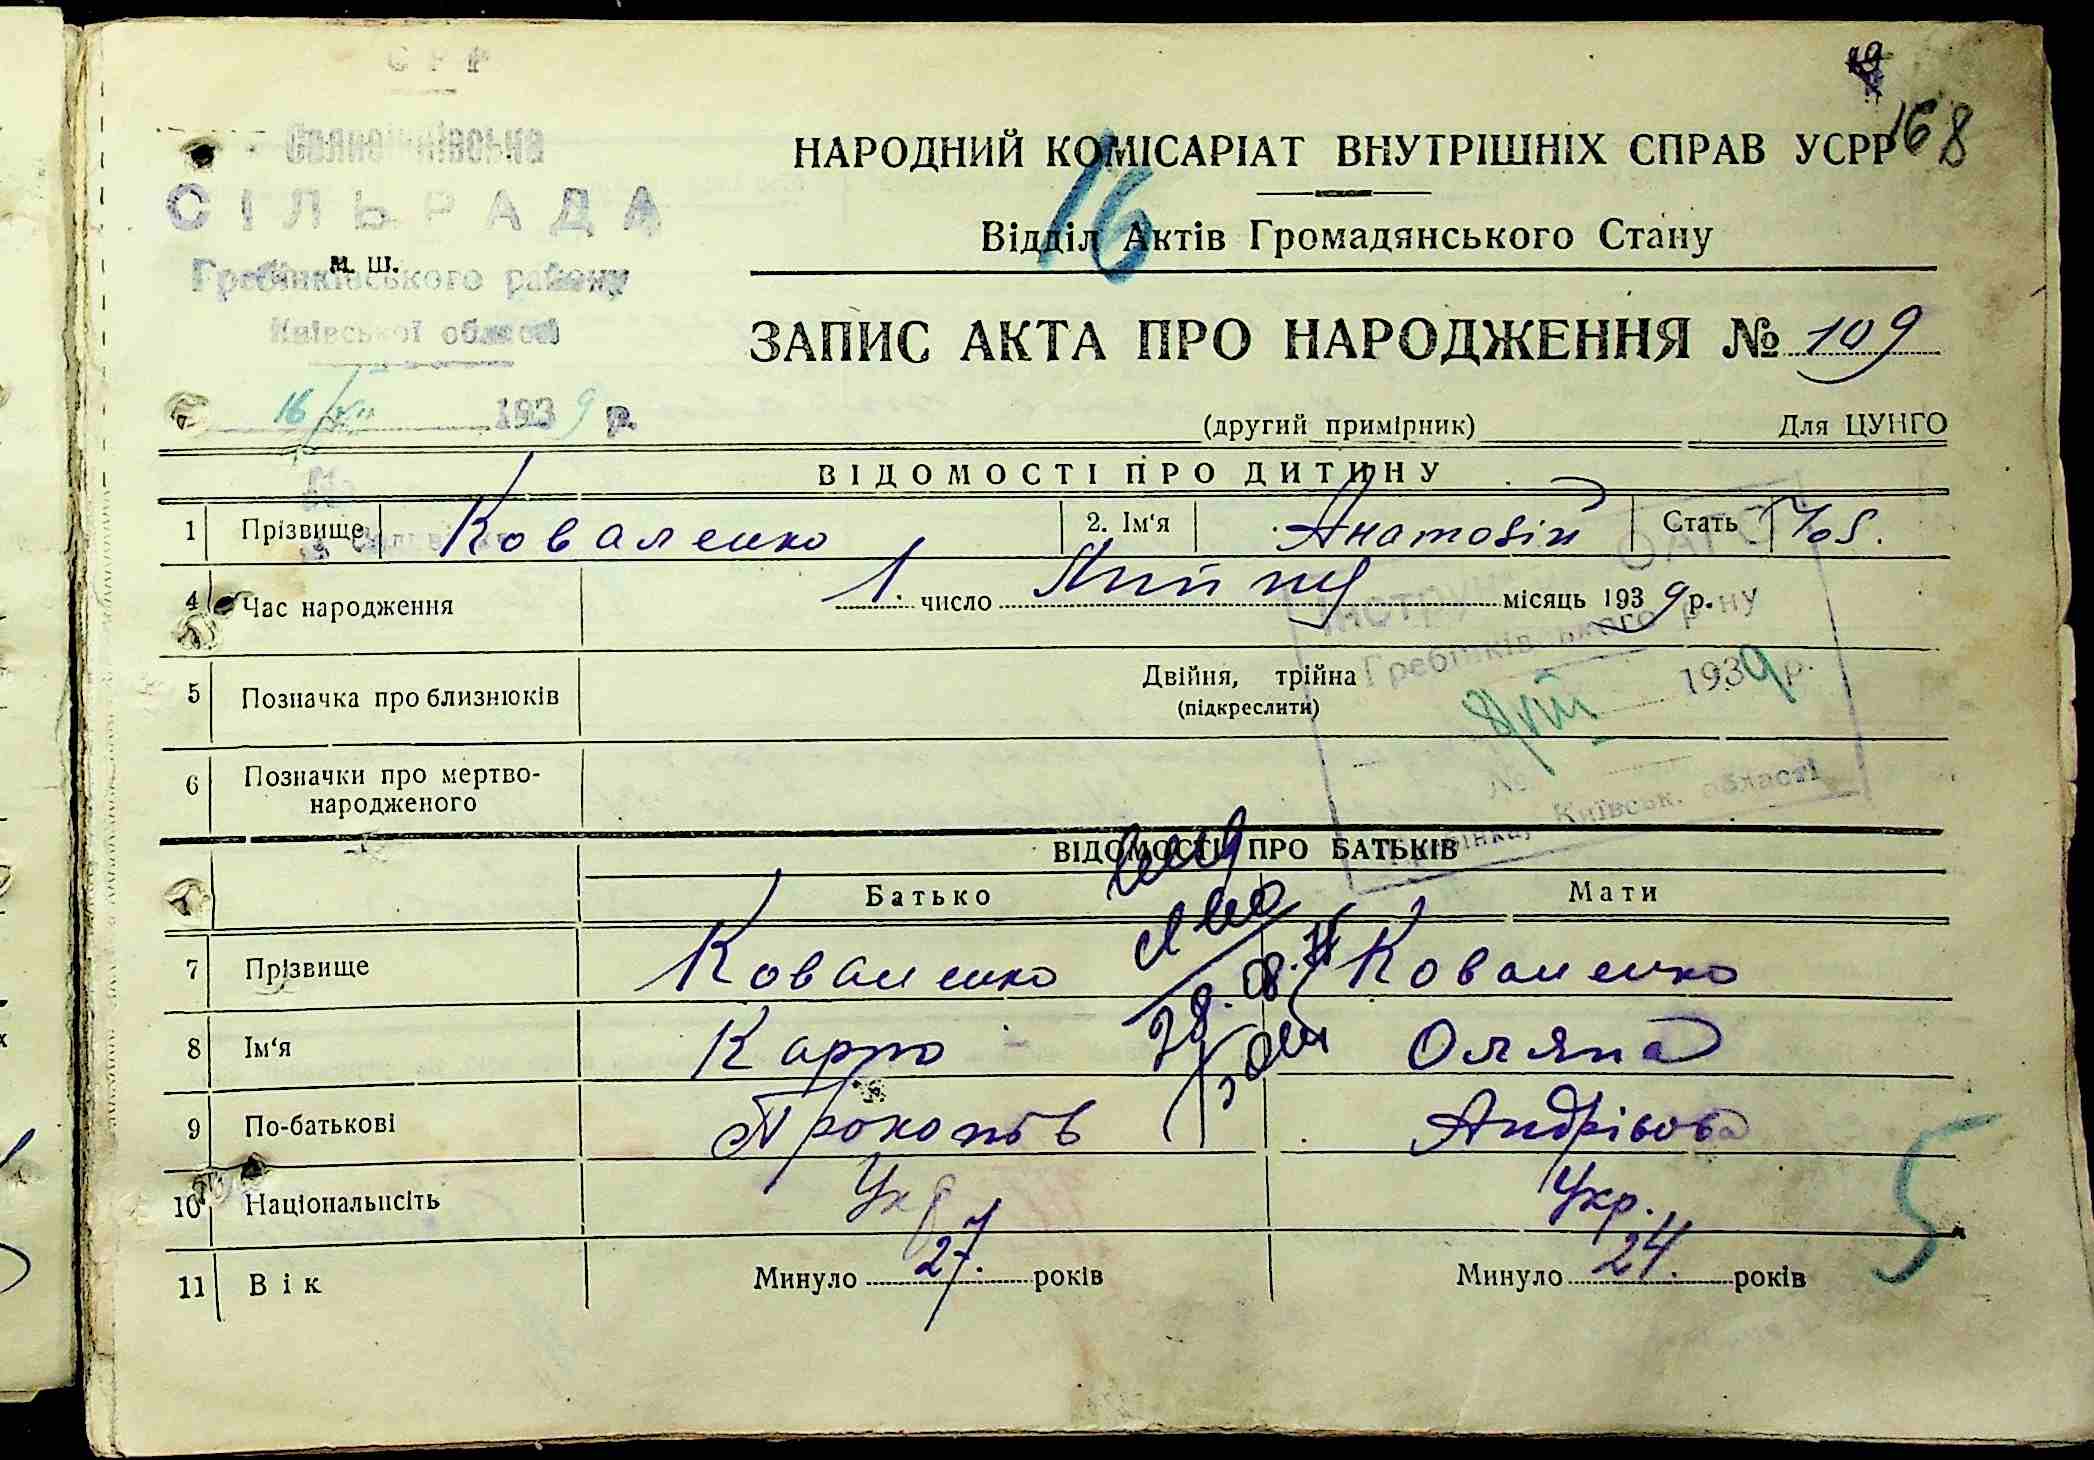 СРР
СІЛЬРАДА
м. ш.
Гребінківського району
Київської області
16/VII 1939 р.
168
НАРОДНИЙ КОМІСАРІАТ ВНУТРІШНІХ СПРАВ УСРР
16
Відділ Актів Громадянського Стану
ЗАПИС АКТА ПРО НАРОДЖЕННЯ № 109
(другий примірник) Для ЦУНГО
ВІДОМОСТІ ПРО ДИТИНУ
1 Прізвище Коваленко 2. Ім'я Анатолій Стать чол.
4 Час народження 1. число Липня місяць 1939 р.
ОАГС
Гребінківського р-ну
5 Позначка про близнюків Двійня, трійна
(підкреслити)
1939 р.
№
6 Позначки про мертво-
народженого
Київськ. області
ВІДОМОСТІ ПРО БАТЬКІВ
Батько Мати
7 Прізвище Коваленко Коваленко
8 Ім'я Карпо Оляна
9 По-батькові Прокопів Андрівова
10 Національність Укр Укр.
5
11 Вік Минуло 27. років Минуло 24. років